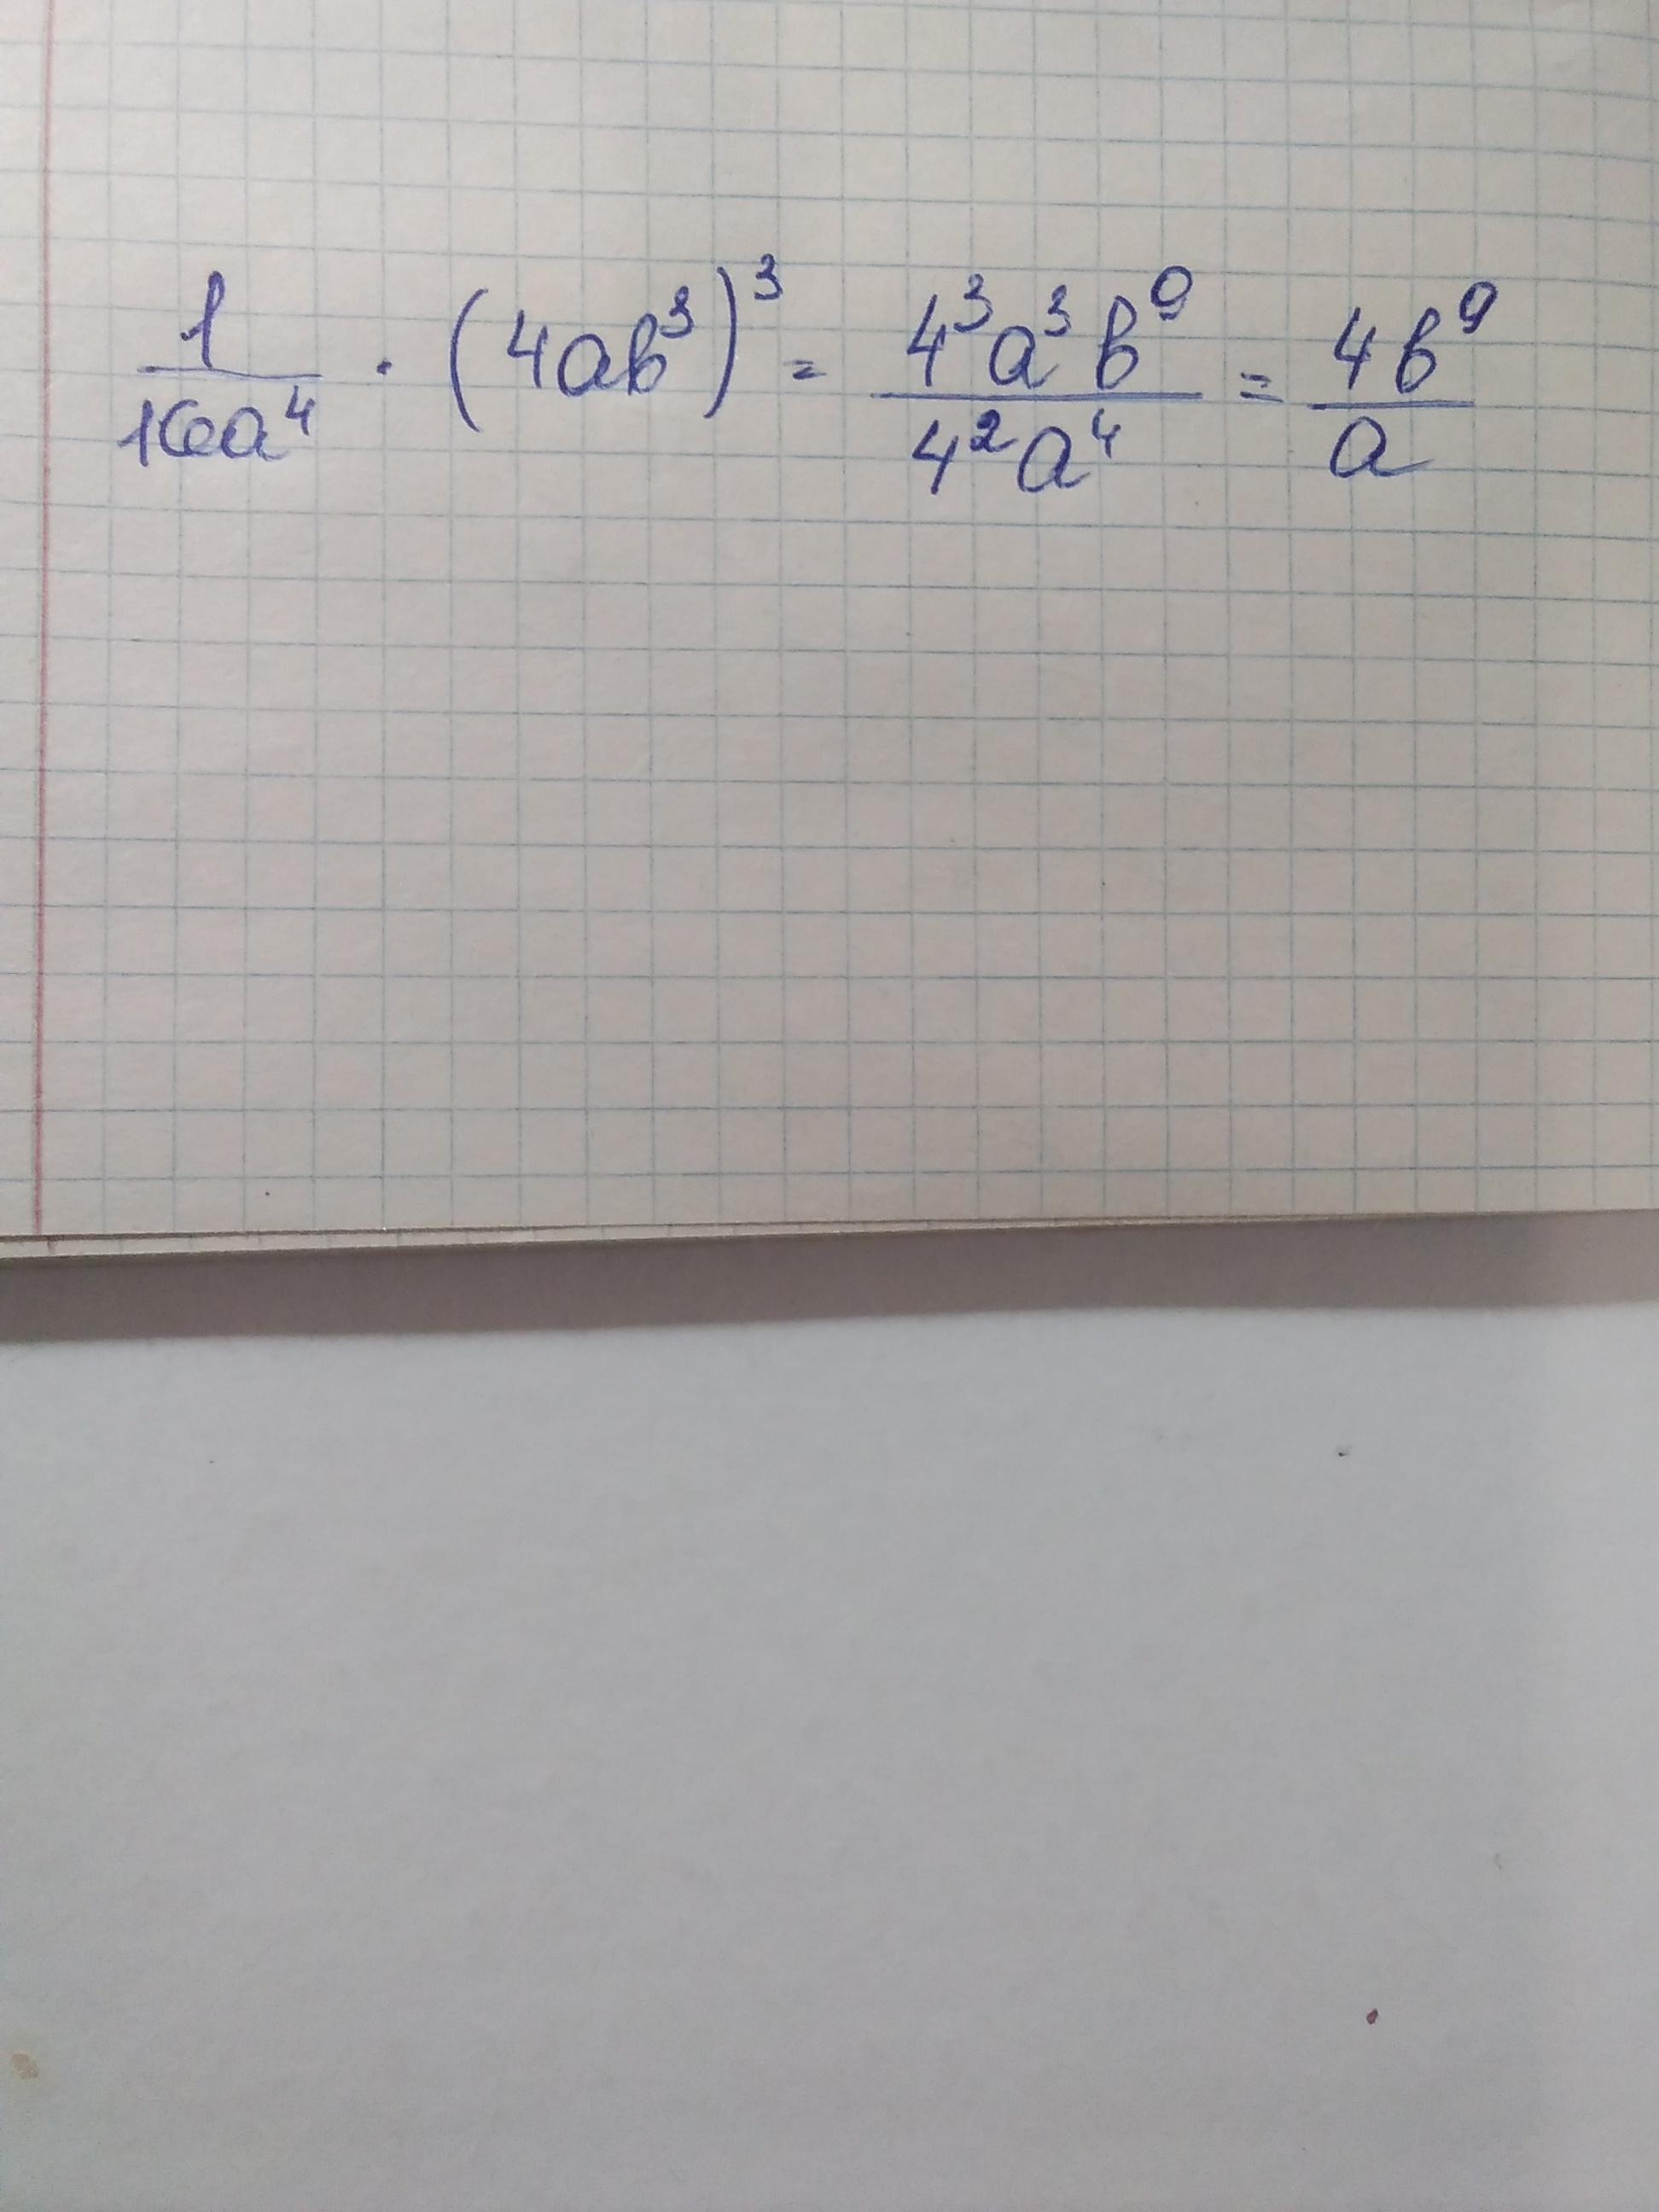 1/16a⁴ · (4ab³)³ = 4³a³b⁹/4²a⁴ = 4b⁹/a